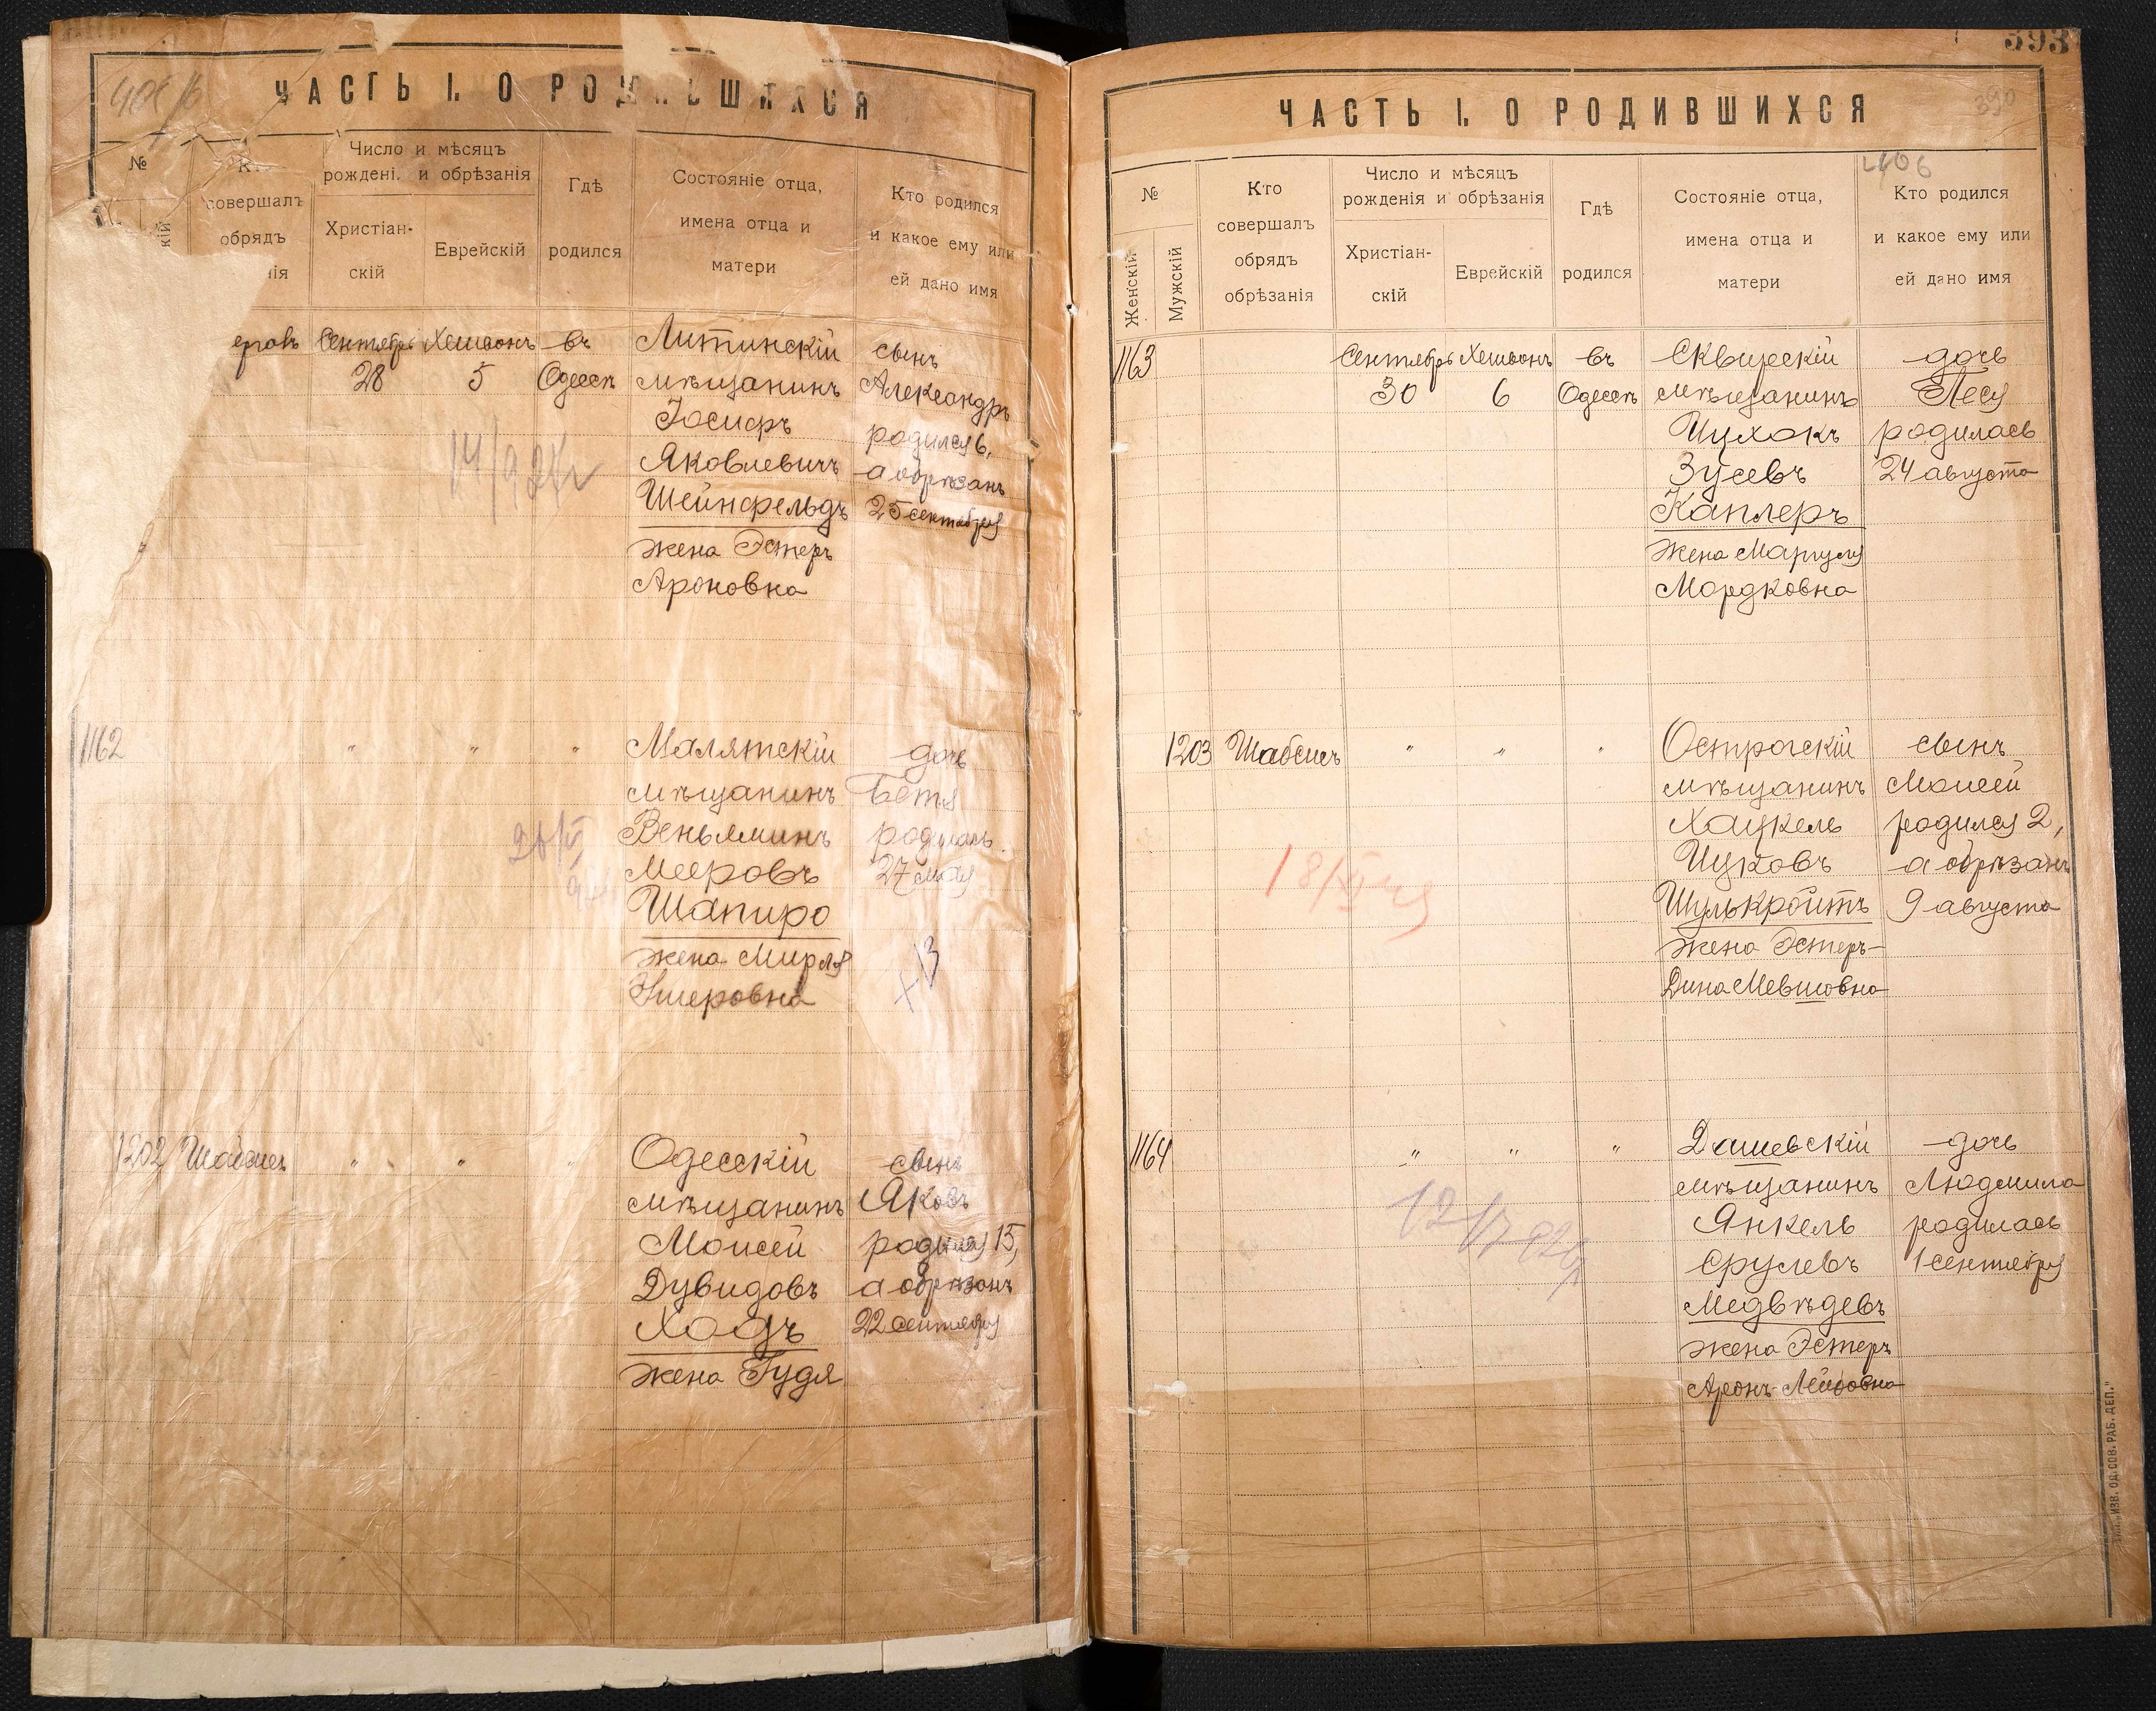 ЧАСТЬ I. О РОДИВШИХСЯ
№
Кто
совершалъ
обрядъ
нія
Число и мѣсяцъ
рожденi. и обрѣзанія
Христіан-
скій
Еврейскій
Гдѣ
родился
Состояніе отца,
имена отца и
матери
Кто родился
и какое ему или
ей дано имя
кій
Сентябрь Хешвонъ въ
28 5 Одессѣ
Литинскій
мѣщанинъ
Іосифъ
Яковлевичъ
Шейнфельдъ
жена Эстеръ
Ароновна
сынъ
Александръ
родился 6,
а обрѣзанъ
25 сентября
1162 " " "
Малятскій
мѣщанинъ
Веньяминъ
Мееровъ
Шапиро
жена Мирля
дочь
Бетя
родилась
27 мая
1202 Шабсисъ " " "
Одесскій
мѣщанинъ
Моисей
Дувидовъ
Ходъ
жена Гудя
сынъ
Яковъ
родился 15,
а обрѣзанъ
22 сентября
393
390
ЧАСТЬ I. О РОДИВШИХСЯ
406
№
Женскій
Мужскій
Кто
совершалъ
обрядъ
обрѣзанія
Число и мѣсяцъ
рожденія и обрѣзанія
Христіан-
скій
Еврейскій
Гдѣ
родился
Состояніе отца,
имена отца и
матери
Кто родился
и какое ему или
ей дано имя
1163 Сентябрь Хешвонъ въ
30 6 Одессѣ
Сквирскій
мѣщанинъ
Ицхокъ
Зусевъ
Каплеръ
жена Маргуля
Мордковна
дочь
Песя
родилась
24 августа
1203 Шабсисъ " " "
Острогскій
мѣщанинъ
Хацкель
Ицковъ
Шулькройтъ
жена Эстеръ-
Дина Мевшовна
сынъ
Моисей
родился 2,
а обрѣзанъ
9 августа
1164 " " "
Дашевскій
мѣщанинъ
Янкель
Срулевъ
Медвѣдевъ
жена Эстеръ
Аронъ-Лейбовна
дочь
Людмила
родилась
1 сентября
ИЗВ. ОД. СОВ. РАБ. ДЕП."